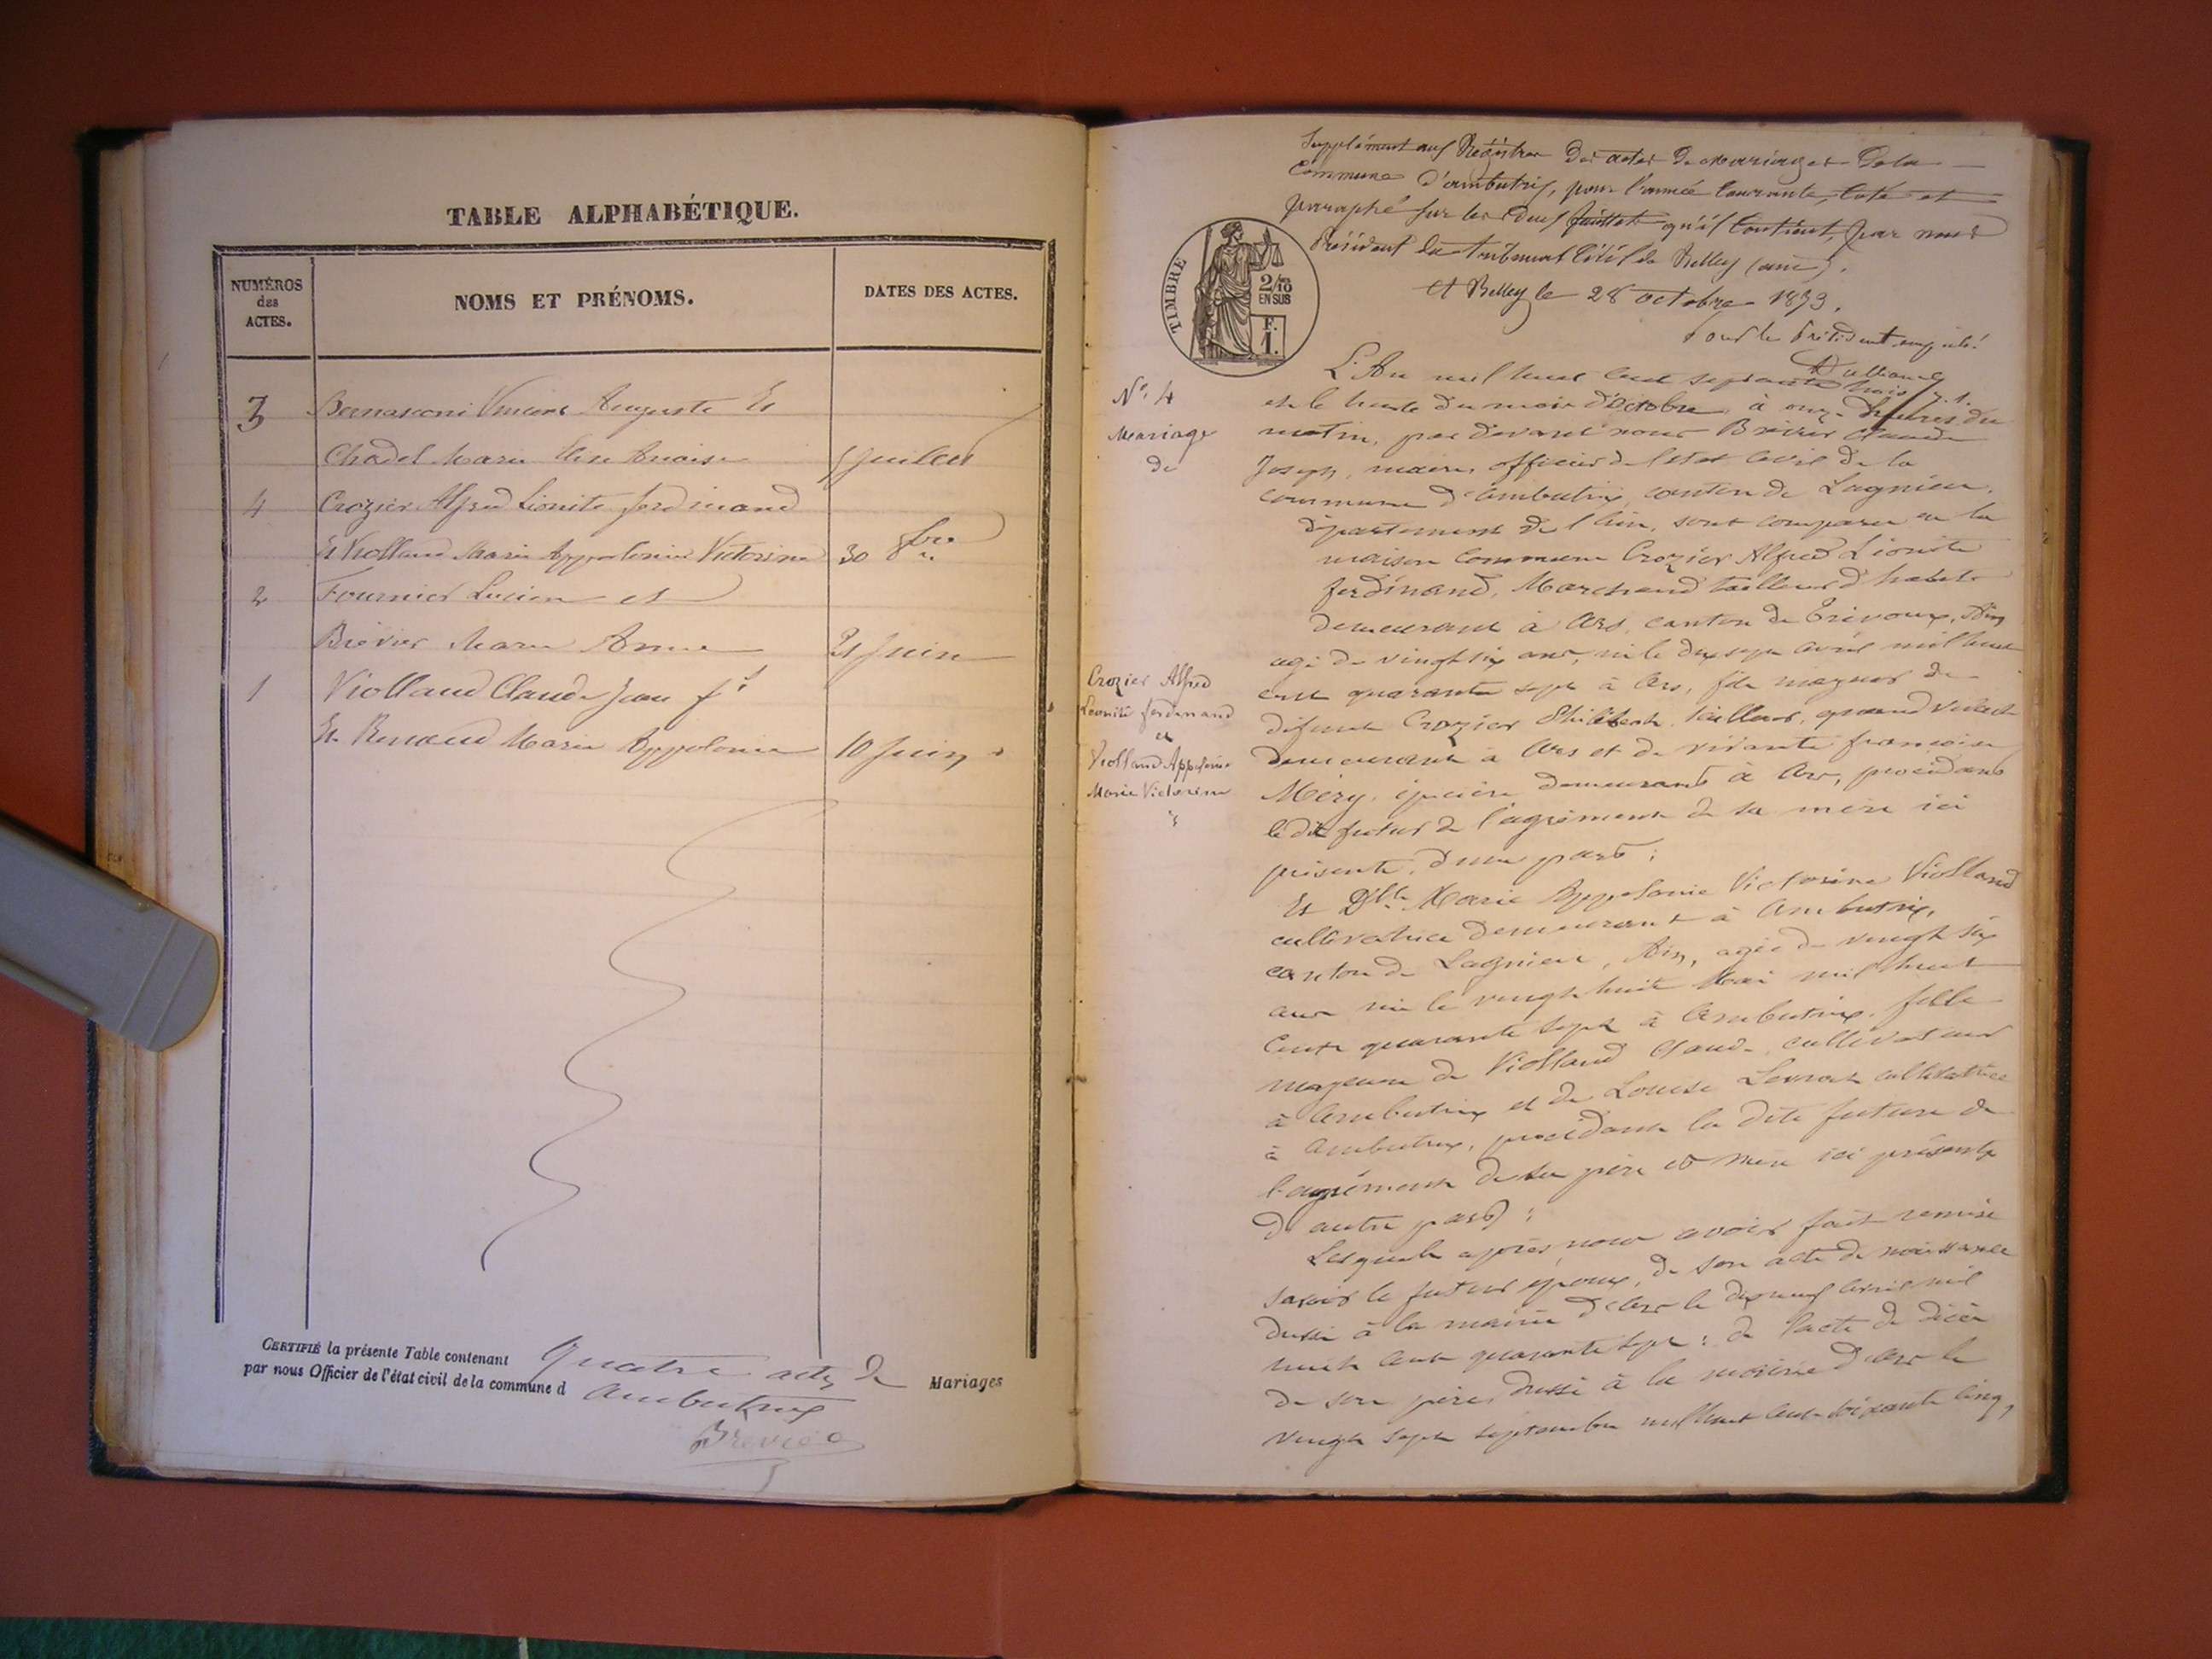 TABLE ALPHABÉTIQUE.
NUMÉROS
des
ACTES.
NOMS ET PRÉNOMS.
DATES DES ACTES.
3 Bernasconi Vincent Auguste Et
Chadel Marie Elise Anaise 5 Juillet
4 Crozier Alfred Léonite ferdinand
Et Violland Marie Appolonie Victorine 30 8bre
2 Fournier Lucien et
Brévier Marie Anne 21 Juin
1 Violland Claude Jean
Et Renaud Marie Appolonie 10 Juin
CERTIFIÉ la présente Table contenant quatre actes de Mariages
par nous Officier de l'état civil de la commune d Ambutrix
Brevier
Supplément aux Registres des actes de mariages de la
Commune d'ambutrix, pour l'année Courante, Coté et
paraphé sur les deux feuillets qu'il Contient, par nous
Président du tribunal Civil de Belley (ain).
A Belley le 28 octobre 1873.
Pour le Président empêché
TIMBRE
2/10
EN SUS
F.
1.
N° 4
Mariage
de
Crozier Alfred
Leonite ferdinand
et
Violland Appolonie
Marie Victorine
L'An mil huit cent septante trois
et le trente du mois d'Octobre, à onze heures du
matin, par devant nous Brévier Claude
Joseph, maire, officier de l'état civil de la
commune d'ambutrix, canton de Lagnieu,
département de l'Ain, sont comparu en la
maison commune Crozier Alfred Léonite
ferdinand, Marchand tailleur d'habits
demeurant à Ars, canton de Trévoux, Ain
agé de vingt six ans, né le dix sept avril mil huit
cent quarante sept à Ars, fils majeur de
défunt Crozier Philibert, tailleur, quand vivait
demeurant à Ars et de vivante françoise
Méry, épicière demeurant à Ars, procédant
le dit futur de l'agrément de sa mère ici
présente, d'une part;
Et Dlle Marie Appolonie Victorine Violland
cultivatrice demeurant à Ambutrix,
canton de Lagnieu, Ain, agée de vingt six
ans née le vingt huit Mai mil huit
Cent quarante sept à Ambutrix, fille
majeure de Violland Claude, cultivateur
à Ambutrix et de Louise cultivatrice
à Ambutrix, procédant la dite future de
l'agrément de sa père et mère ici présents
d'autre part;
Lesquels après nous avoir fait remise
savoir le futur époux, de son acte de naissance
dressé à la mairie d'Ars le dix neuf avril mil
huit cent quarante sept; de l'acte de décès
de son père, dressé à la mairie d'Ars le
vingt sept septembre mil huit cent soixante cinq,